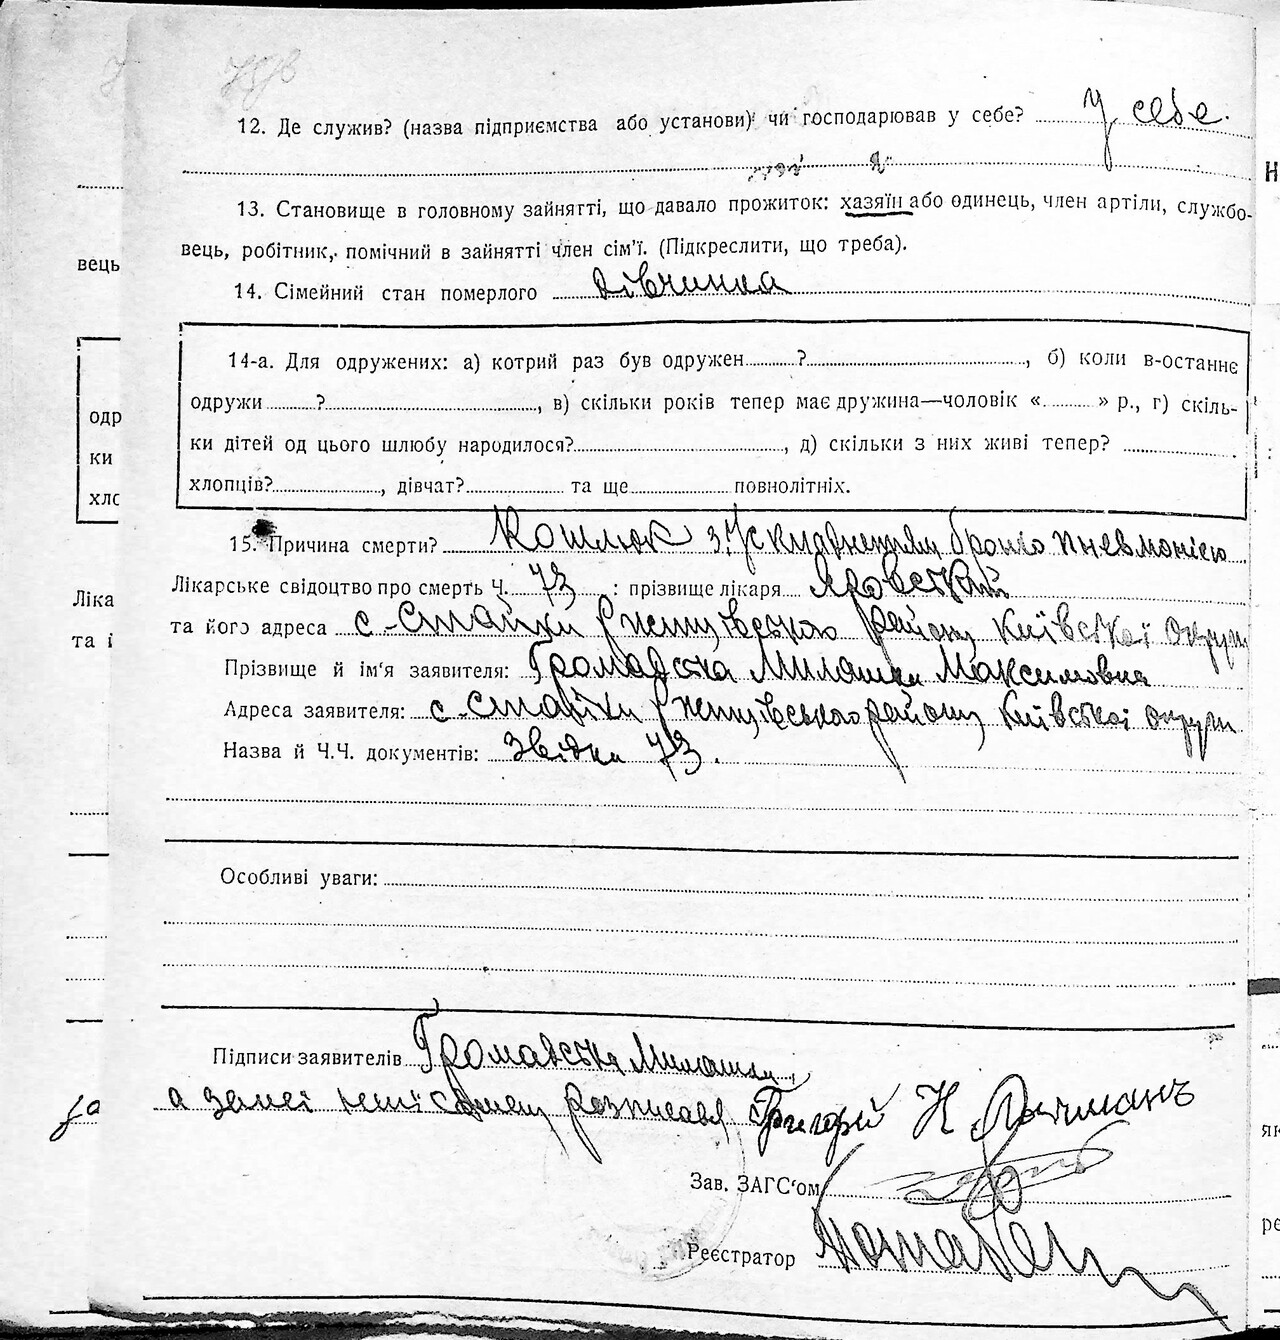 12. Де служив? (назва підприємства або установи) чи господарював у себе? У себе.
13. Становище в головному зайнятті, що давало прожиток: хазяїн або одинець, член артіли, службо-
вець, робітник, помічний в зайнятті член сім'ї. (Підкреслити, що треба).
14. Сімейний стан померлого дівчинка
14-а. Для одружених: а) котрий раз був одружен ? , б) коли в-останнє
одружи ? , в) скільки років тепер має дружина—чоловік « » р., г) скіль-
ки дітей од цього шлюбу народилося? , д) скільки з них живі тепер?
хлопців? , дівчат? та ще повнолітніх.
15. Причина смерти? Кошлюк з бронхо пневмонією
Лікарське свідоцтво про смерть Ч. 73 : прізвище лікаря Яровський
та його адреса с-Стайки Ржищівського району Київської округи
Прізвище й ім'я заявителя: Громадська Милашка Максимовна
Адреса заявителя: с-Стайки Ржищівського району Київської округи
Назва й Ч.Ч. документів: Звідка 73.
Особливі уваги:
Підписи заявителів Громадська Милашка,
а за неї неписьмену розписавя Григорій Н
Зав. ЗАГС'ом
Реєстратор
вець
одр
ки
хлс
Ліка
та і